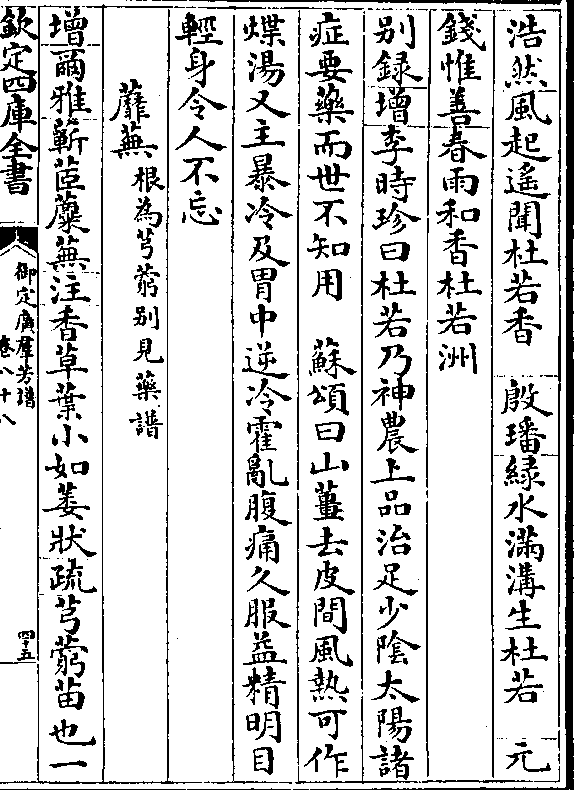 浩然風起遙聞杜若香　殷璠緑水滿溝生杜若　元
錢惟善春雨和香杜若洲
别録增李時珍曰杜若乃神農上品治足少陰太陽諸
症要藥而世不知用　蘇頌曰山薑去皮間風熱可作
煠湯又主暴冷及胃中逆冷霍亂腹痛久服益精明目
輕身令人不忘
蘼蕪根為芎藭别見藥譜
增爾雅蘄茝蘪蕪注香草葉小如萎狀疏芎藭苗也一
欽定四庫全書
御定廣羣芳譜
卷八十八
四十五